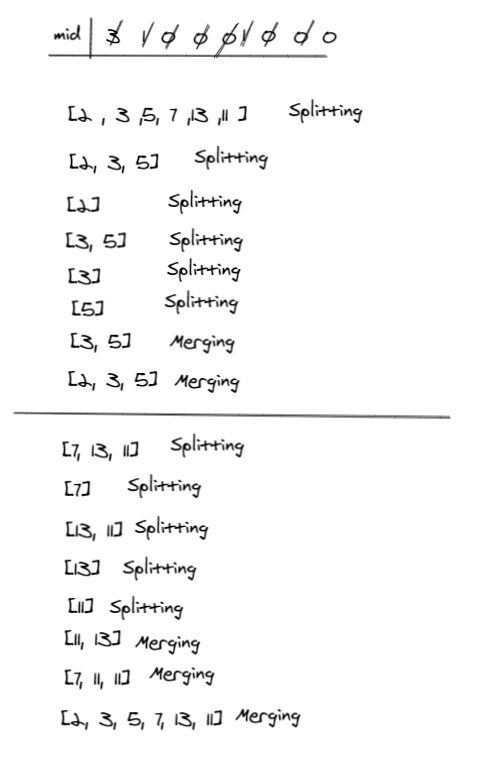 mid | 3 1 0 0 0 1 0 0 0
[2, 3, 5, 7, 13, 11] Splitting
[2, 3, 5] Splitting
[2] Splitting
[3, 5] Splitting
[3] Splitting
[5] Splitting
[3, 5] Merging
[2, 3, 5] Merging
[7, 13, 11] Splitting
[7] Splitting
[13, 11] Splitting
[13] Splitting
[11] Splitting
[11, 13] Merging
[7, 11, 11] Merging
[2, 3, 5, 7, 13, 11] Merging